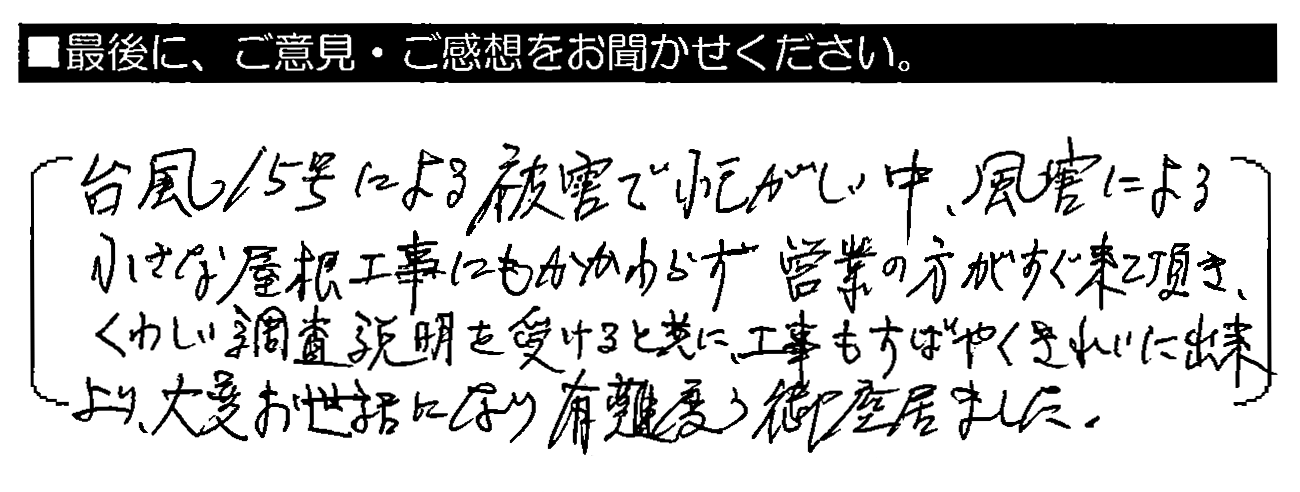 ■最後に、ご意見・ご感想をお聞かせください。
台風15号による被害で忙がしい中、風害による
小さな屋根工事にもかかわらず営業の方がすぐ来て頂き、
くわしい調査説明を受けると共に、工事もすばやくきれいに出来
より、大変お世話になり有難度う御座居ました。